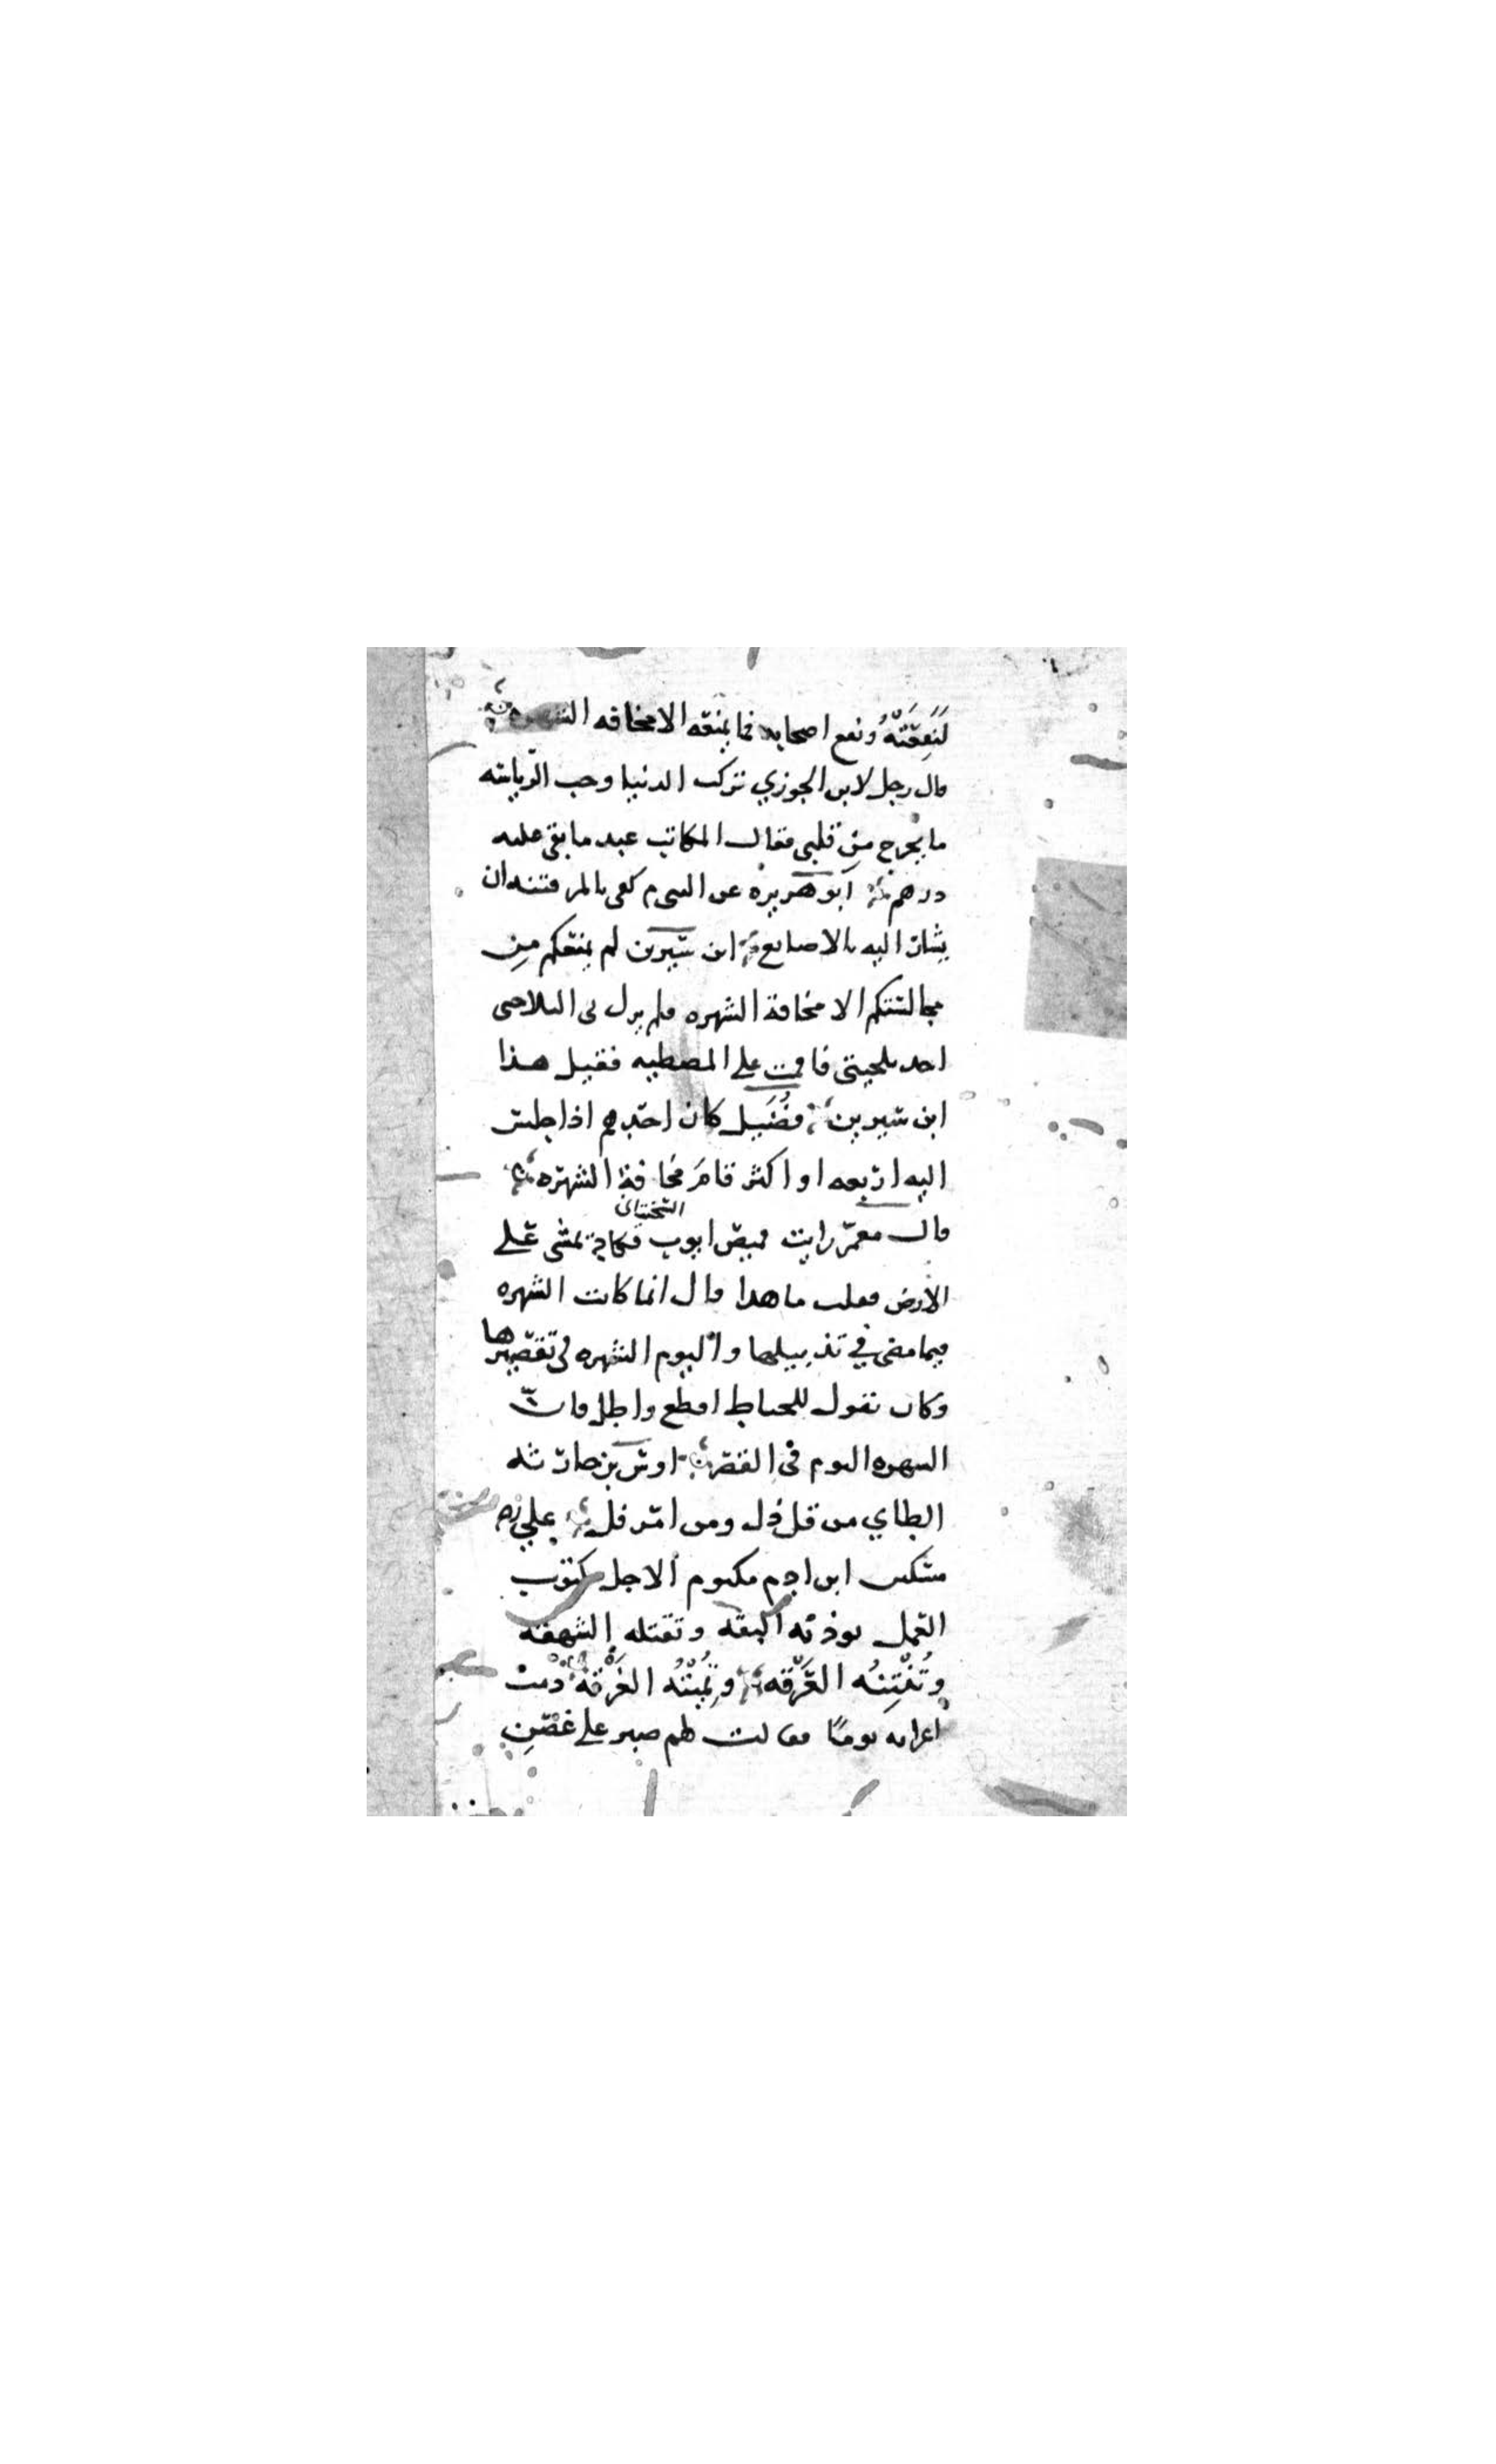 لنفعته ونفع اصحابه فما يمنعه الا مخافه الشهره
قال رجل لابن الجوزي تركت الدنيا وحب الرياسه
ما يخرج من قلبي فقال المكاتب عبد ما بقي عليه
درهم ابو هريره عن النبي م كفى بالمر فتنه ان
يشار اليه بالاصابع ابن سيرين لم يمنعكم من
مجالستكم الا مخافة الشهره فلم يزل بي البلا حتى
اخذ بلحيتي فاقمت على المصطبه فقيل هذا
ابن سيرين فضيل كان احدهم اذا جلس
اليه اربعه او اكثر قام مخافة الشهره
قال معمر رايت قميص ايوب السختياني فكاد يمشي على
الارض فقلت ما هذا قال انما كانت الشهره
فيما مضى في تذييلها واليوم الشهره في تقصيرها
وكان يقول للخياط اقطع واطل فان
الشهره اليوم في القصر اوس بن حارثه
الطاي من قل ذل ومن امر فل علي رضه
مسكين ابن ادم مكتوم الاجل مكتوب
العمل توذيه البقه وتقتله الشهقه
وتنتنه العرقه وتميته الغرقه دمت
اعرابيه قوما فقالت لهم صبر على غصص